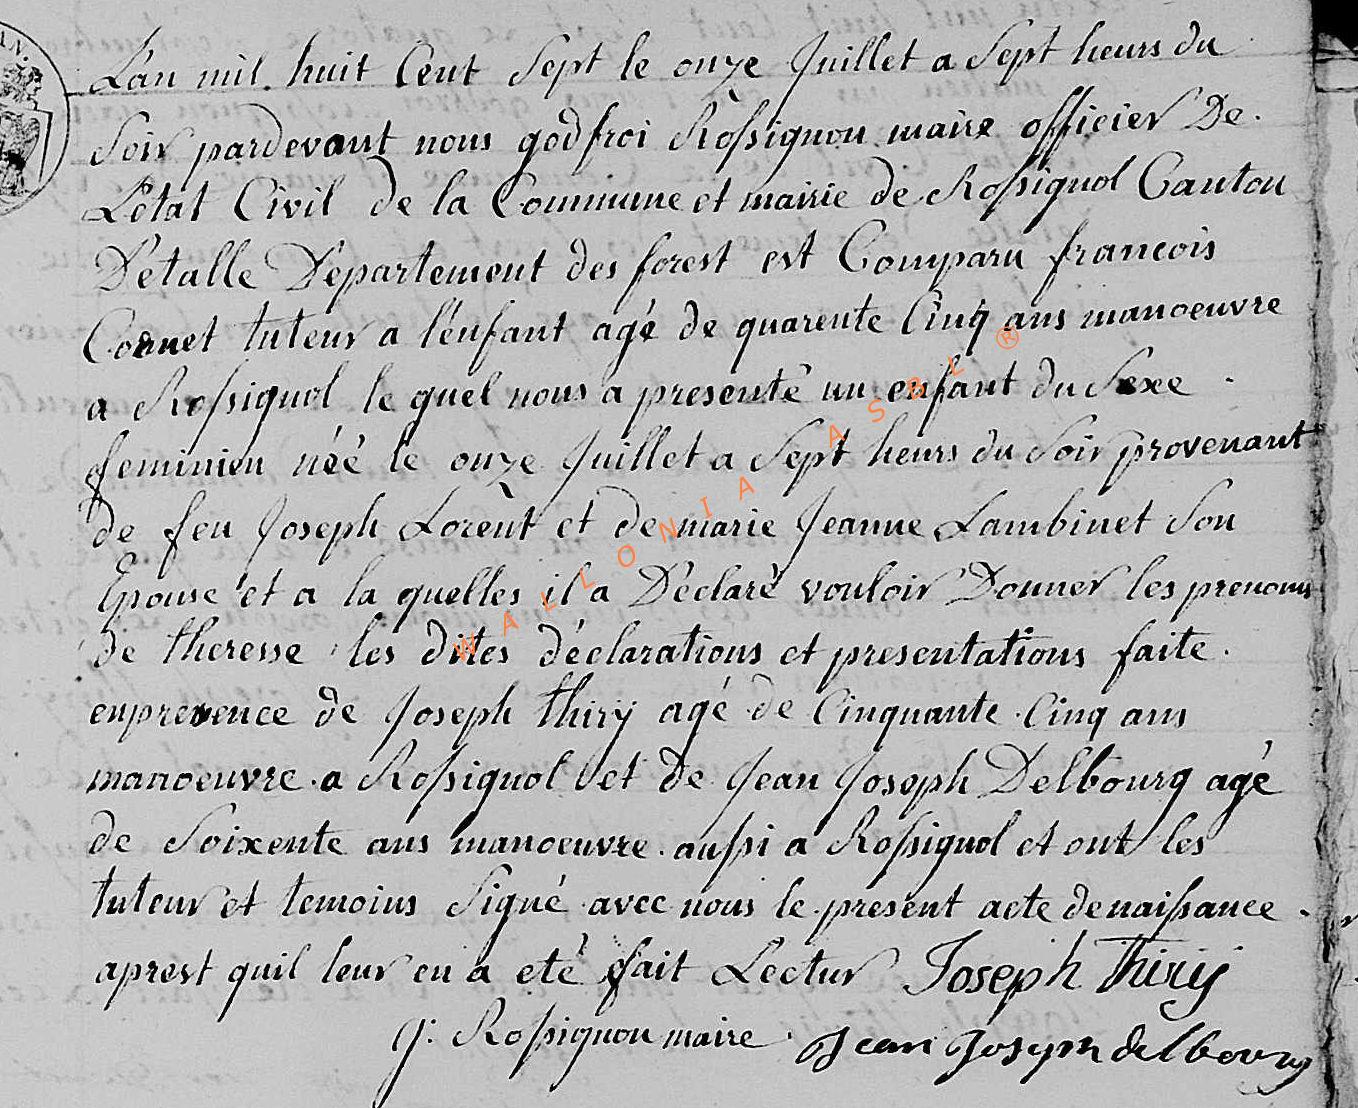 L'an mil huit Cent Sept le onze Juillet a Sept heurs du
Soir pardevant nous godfroi Rossignon maire officier De
L'etat Civil de la Commune et mairie de Rossignol Canton
D'etalle Departement des forest est Comparu francois
Cornet tuteur a l'enfant agé de quarente Cinq ans manoeuvre
a Rossignol le quel nous a presenté un enfant du Sexe
feminien néé le onze Juillet a Sept heurs du Soir provenant
de feu Joseph Lorènt et de marie Jeanne Lambinet Son
Epouse et a la quelles il a Déclaré vouloir Donner les prenoms
de theresse les dites déclarations et presentations faite
enpresence de Joseph thiry agé de Cinquante Cinq ans
manoeuvre a Rossignol et de Jean Joseph Delbourg agé
de Soixente ans manoeuvre aussi a Rossignol et ont les
tuteur et temoins Signé avec nous le present acte denaissance
aprest quil leur en a eté fait Lectur Joseph Thiry
g. Rossignon maire Jean Joseph delbourg
WALLONIA ASBL ®